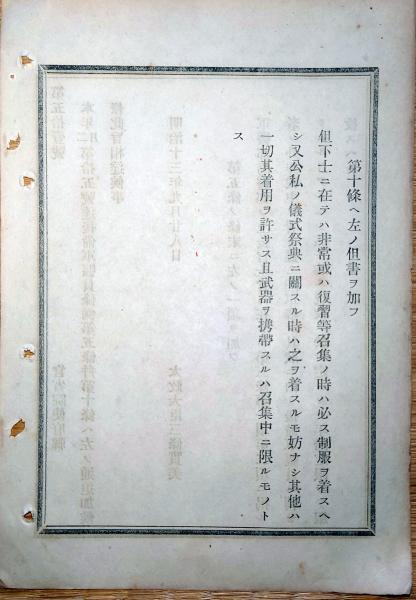 第十條ヘ左ノ但書ヲ加フ
但下士ニ在テハ非常或ハ復習等召集ノ時ハ必ス制服ヲ着スヘ
シ又公私ノ儀式祭典ニ關スル時ハ之ヲ着スルモ妨ナシ其他ハ
一切其着用ヲ許サス且武器ヲ携帶スルハ召集中ニ限ルモノト
ス